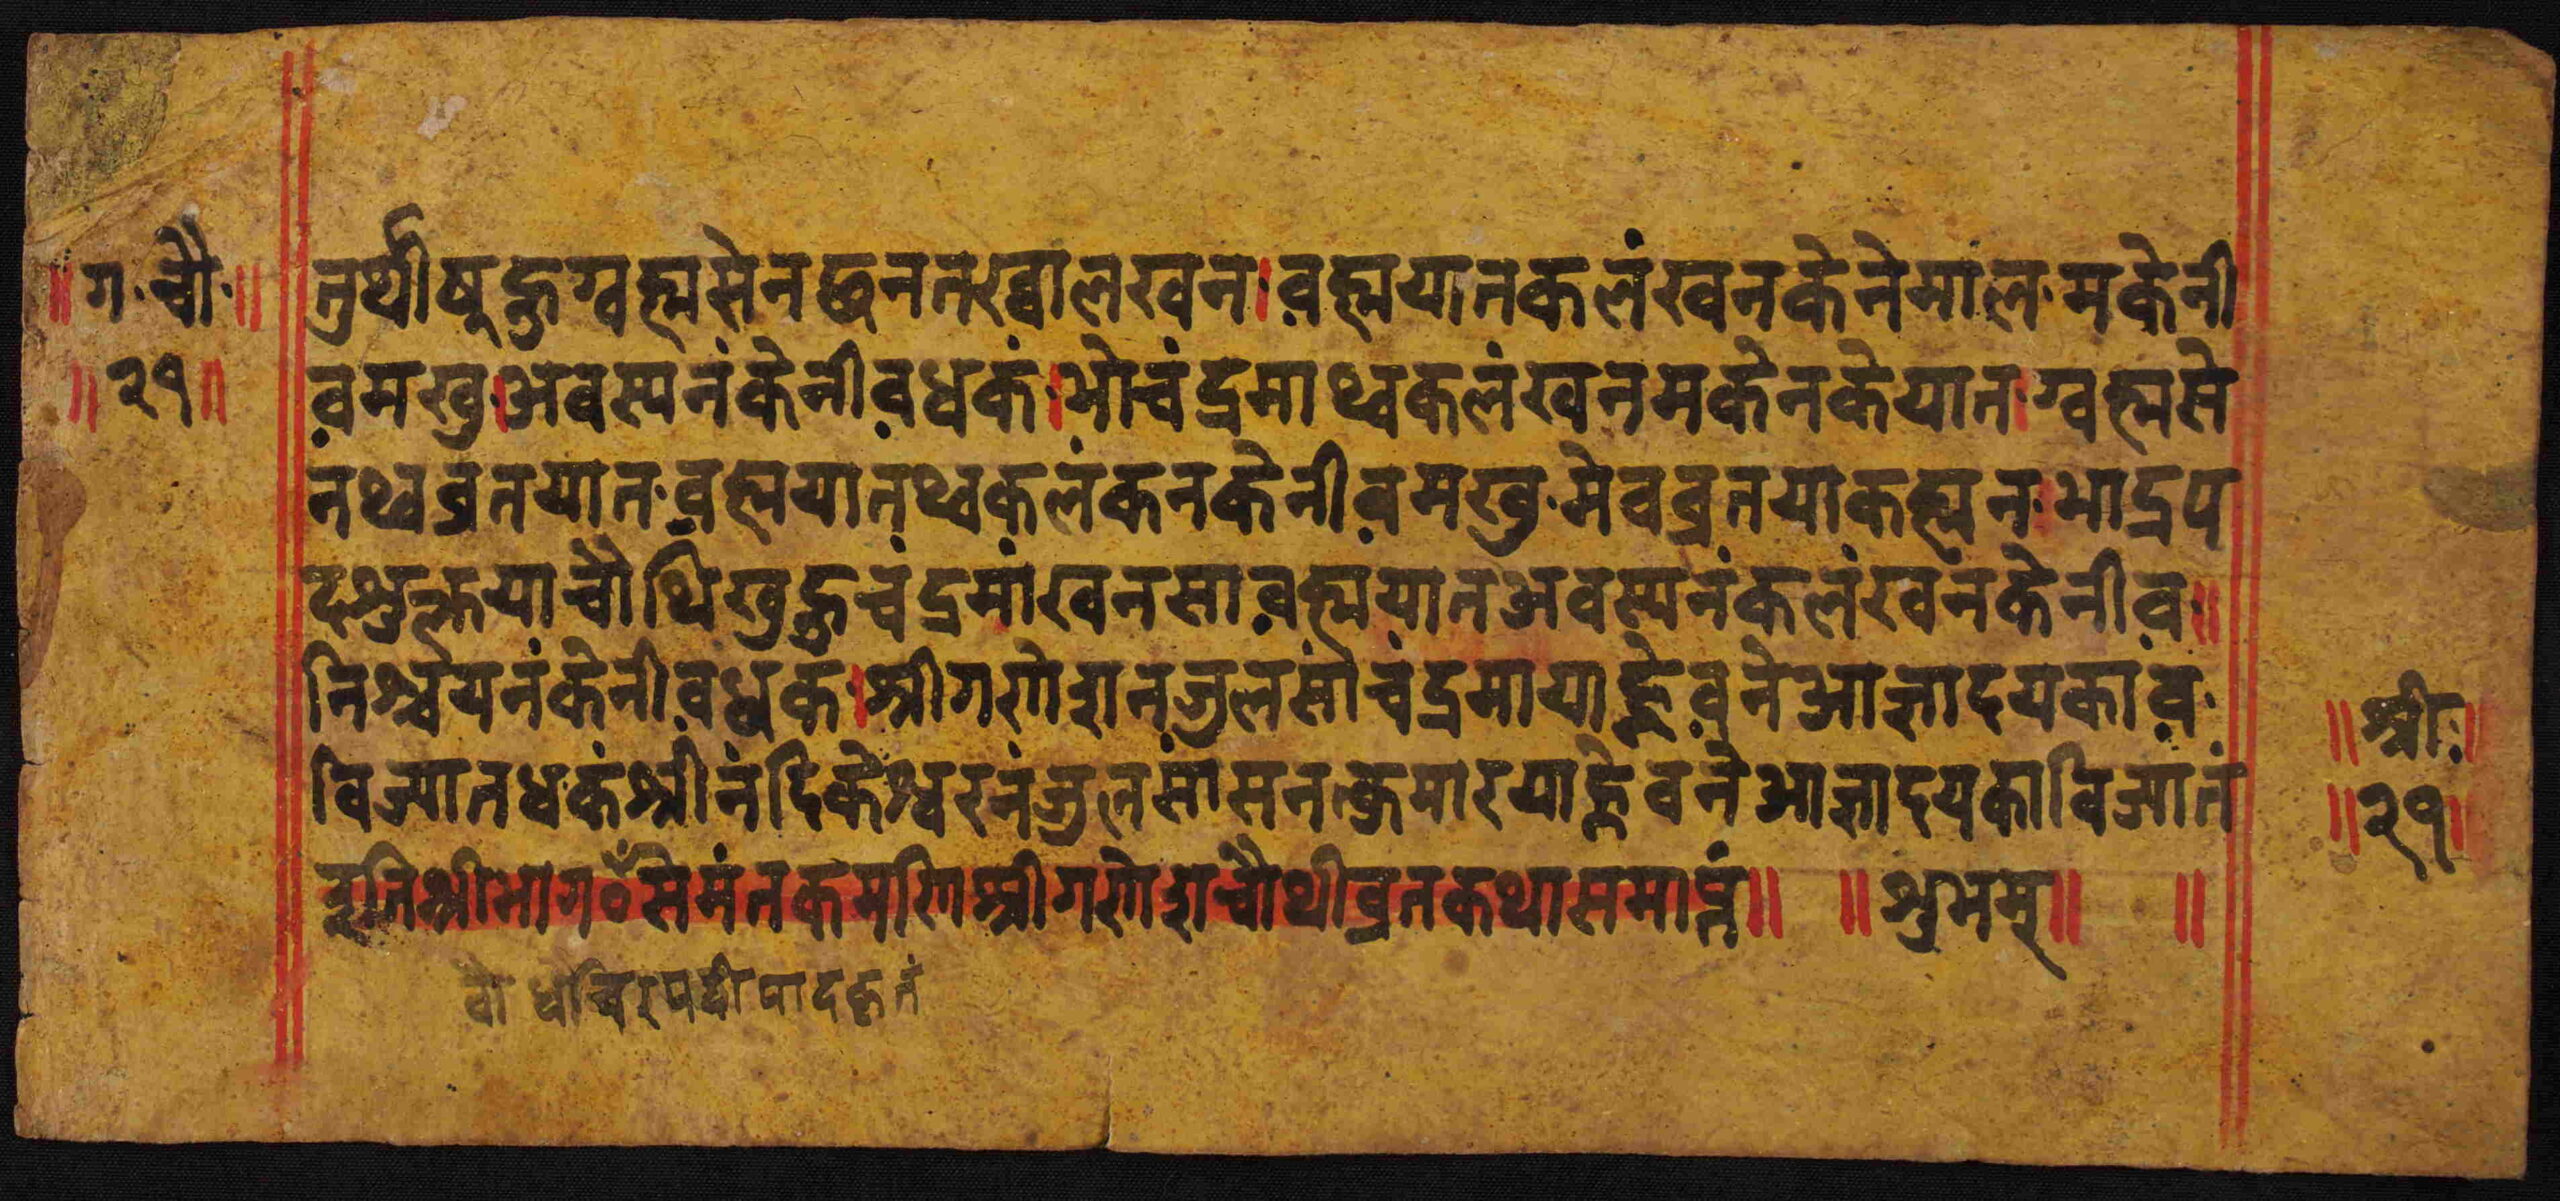 ॥ग·चौ·॥
॥२१॥
तुर्थीषुह्नुग्वह्मसेनछनतख्वालखन।व़ह्मयातकलंखनकेनेमाल·मकेनी
व़मखु।अवस्यनंकेनीव़धकं।भोचंद्रमाथ्वकलंखनमकेनकेयात।ग्वह्मसे
नथ्वव्रतयात·व़ह्मयातथ्वकलंकनकेनीव़मखु·मेवव्रतयाकह्मन·भाद्रप
दशुक्लयाचौथिखुह्नुचंद्रमांखनसाव़ह्मयातअवस्यनंकलंखनंकेनीव़॥
निश्चयनंकेनीव़धकं।श्रीगणेशनजुलसांचंद्रमायाह्नेव़नेआज्ञादयकाव़·
विज्यातधकंश्रीनंदिकेश्वरनंजुलसांसनत्कुमारयाह्नेवनेआज्ञादयकाविज्यातं
इतिश्रीभागवँसेमंतकमणिश्रीगणेशचौथीव्रतकथासमाप्तं॥ ॥शुभम्॥ ॥
॥श्रीः॥
॥२१॥